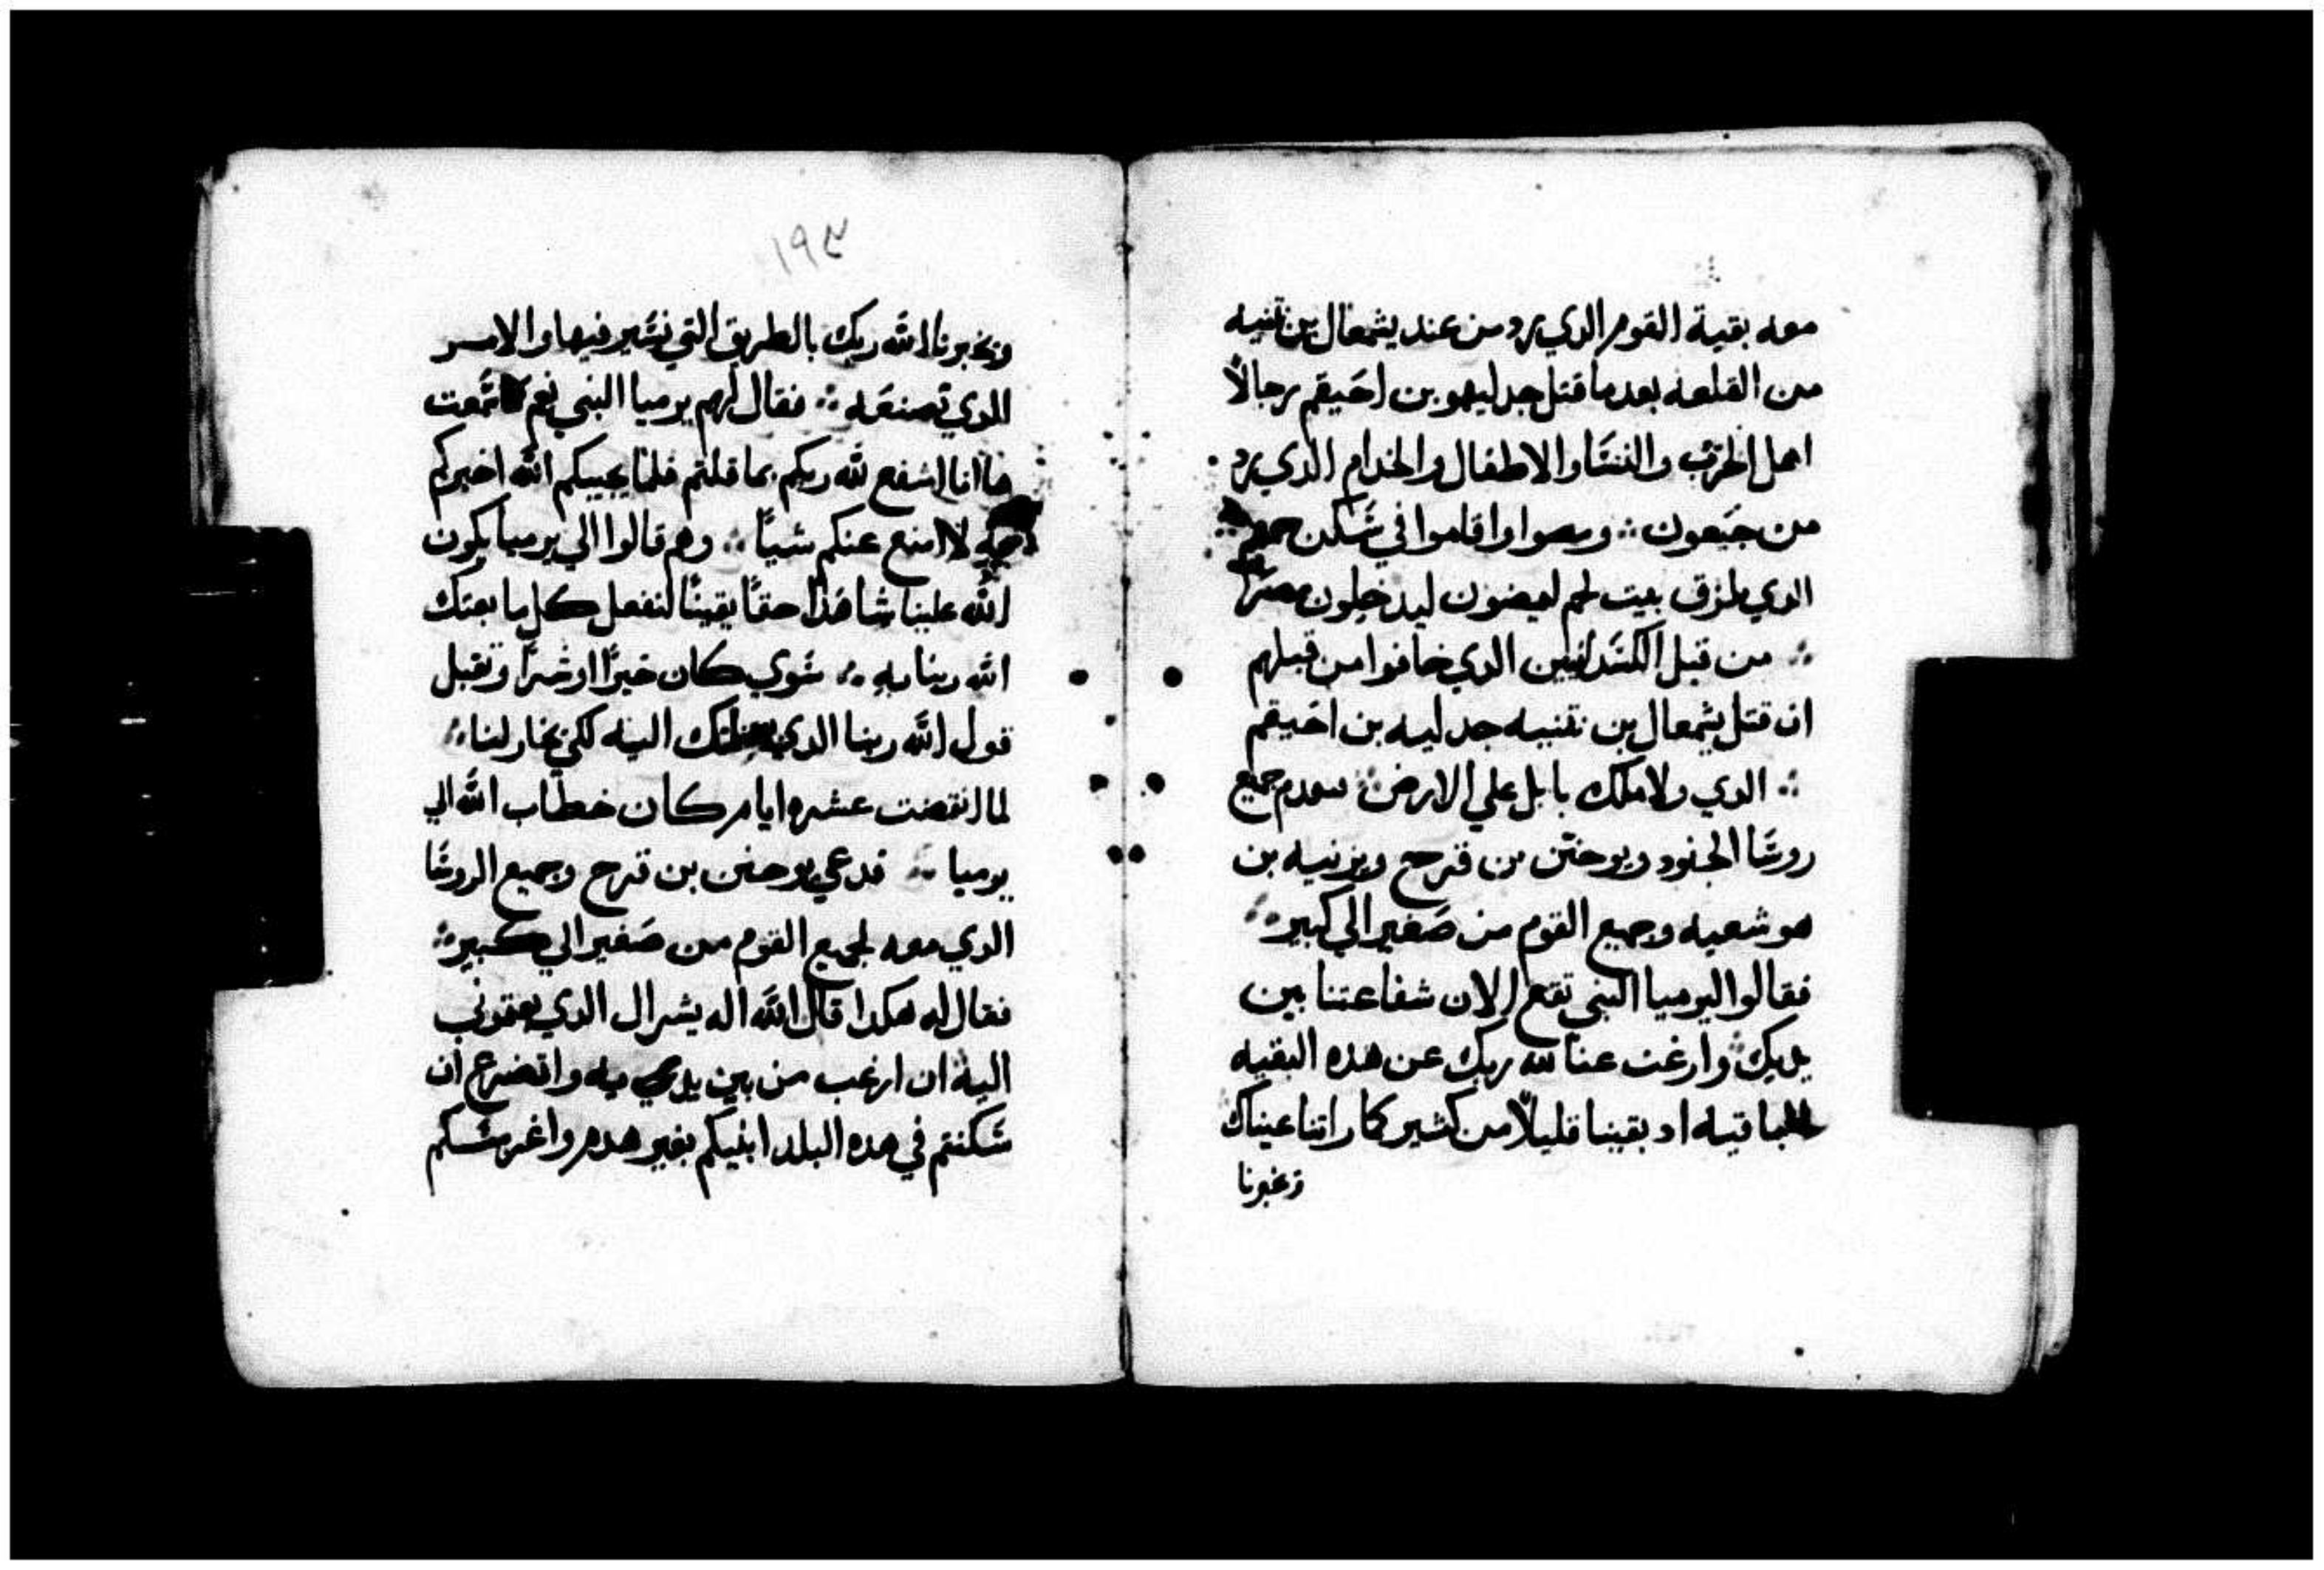 معه بقية القوم الدي رد من عند يشمعال بن نتنيه
من القلعه بعد ما قتل جدليهو بن احيقم رجالاً
اهل الحرب والنسا والاطفال والخدام الدي رد
من جبعون ومصوا واقاموا في سكن
الدي لمزق بيت لحم ليمضون ليدخلون مصر
من قبل الكسدانيين الدي خافوا من قبلهم
ان قتل يشمعال بن نتنيه جدليه بن احيقم
الدي ولا ملك بابل علي الارض جميع
روسا الجنود ويوحنن بن قرح ويزنيه بن
هوشعيه وجميع القوم من صغير الي كبير
فقالوا ليرميا النبي تقع الان شفاعتنا بين
يديك وارغب عنا لله ربك عن هده البقيه
الباقيه اد بقينا قليلاً من كثير كما راتنا عيناك
وتخبرنا
١٩٤
وتخبرنا الله ربك بالطريق التي نسير فيها والامر
الدي نصنعه فقال لهم يرميا النبي نعم سمعت
هاانا اشفع لله ربكم بما قلتم فلما يجيبكم الله اخبركم
لا امنع عنكم شياً وهم قالوا الي يرميا يكون
الله علينا شاهدا حقاً يقيناً لنفعل كل ما بعتك
الله ربنا به سوي كان خيراً او شراً ونقبل
قول الله ربنا الدي بعتك اليه لكي يختار لنا
لما انقضت عشره ايام كان خطاب الله الي
يرميا فدعي يوحنن بن قرح وجميع الروسا
الدي معه لجميع القوم من صغير الي كبير
فقال له هكدا قال الله اله يشرال الدي بعتوني
اليه ان ارغب من بين يديه واتضرع ان
سكنتم في هده البلد ابنيكم بغير هدم واغرسكم